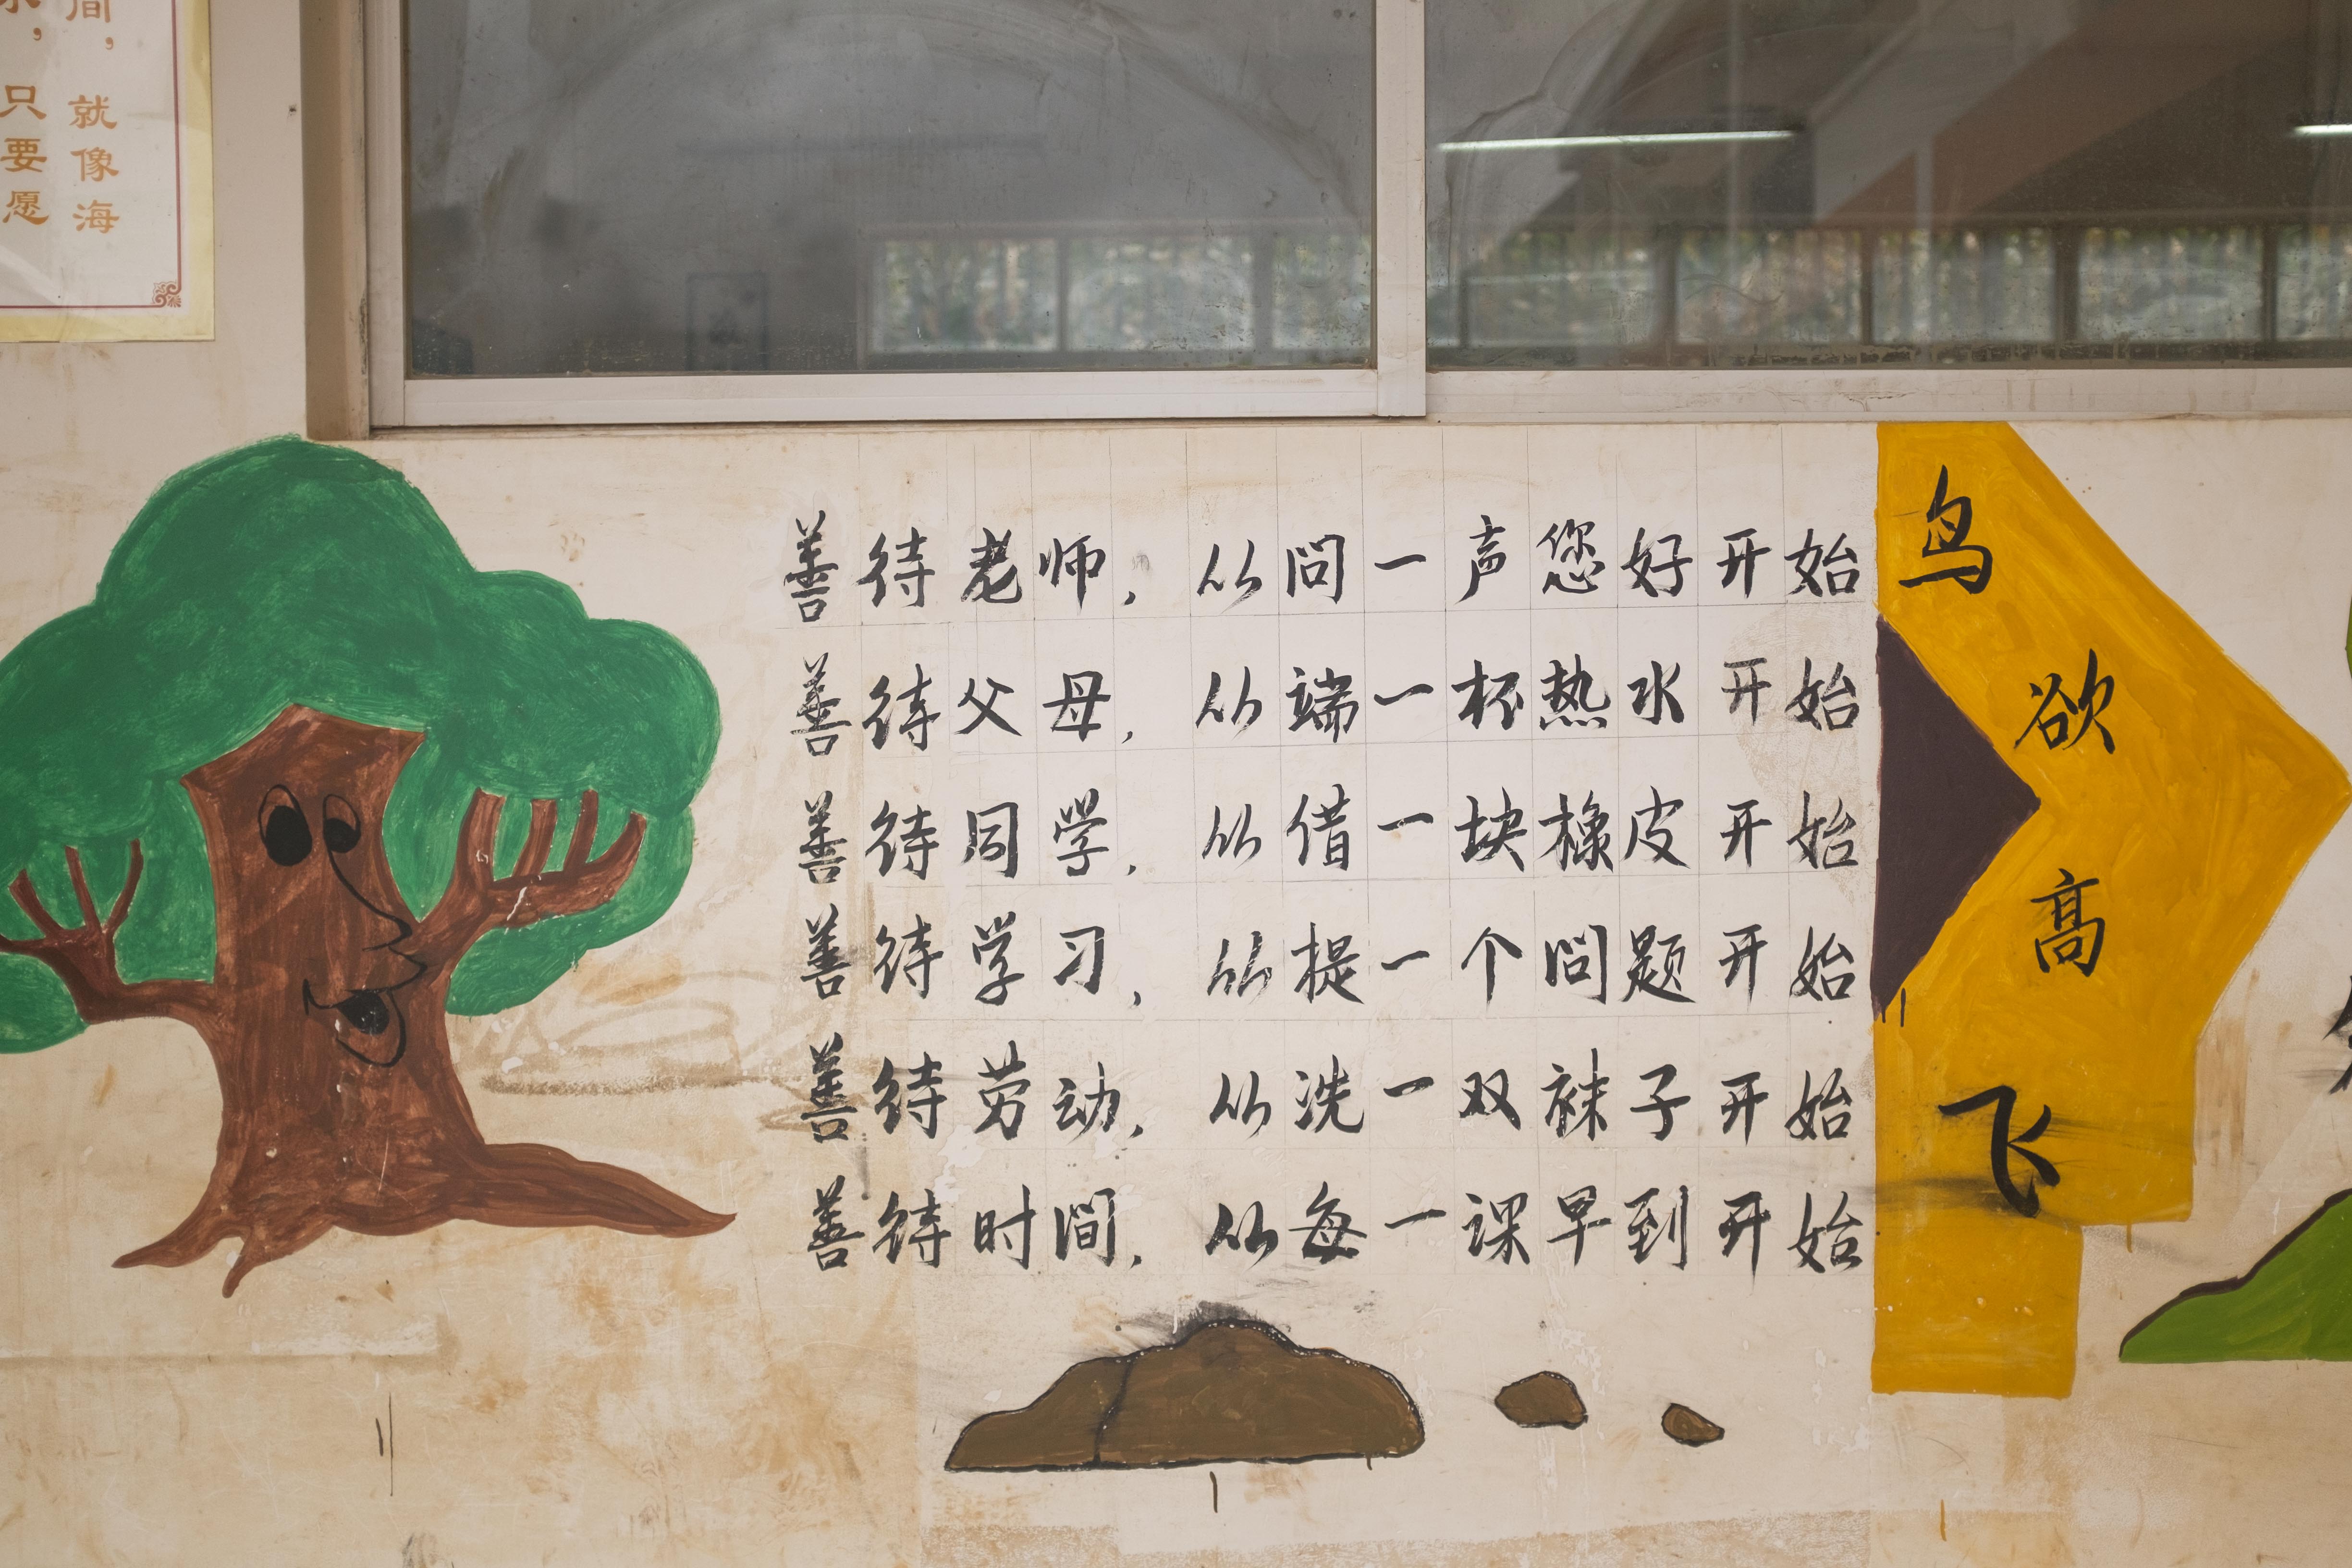 间，就像海
，只要愿
善待老师，从问一声您好开始
善待父母，从端一杯热水开始
善待同学，从借一块橡皮开始
善待学习，从提一个问题开始
善待劳动，从洗一双袜子开始
善待时间，从每一课早到开始
鸟欲高飞